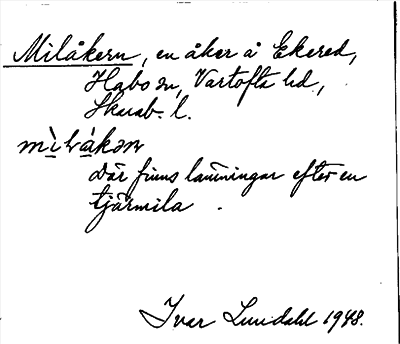 Milåkern, en åker å Ekered,
Habo sn, Vartofta hd.,
Skarab. l.
mìlåkən
där finns lämningar efter en
tjärmila.
Ivar Lundahl 1948.